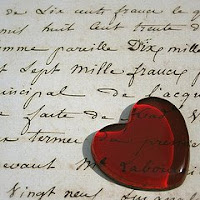 de Dix cents francs le q
mis huit cent trente d
omme pareille Dix mille
t Sept mille francs p
incipal de l'acqu
faite de
u terme du premie
evant Me Labou
Vingt neuf